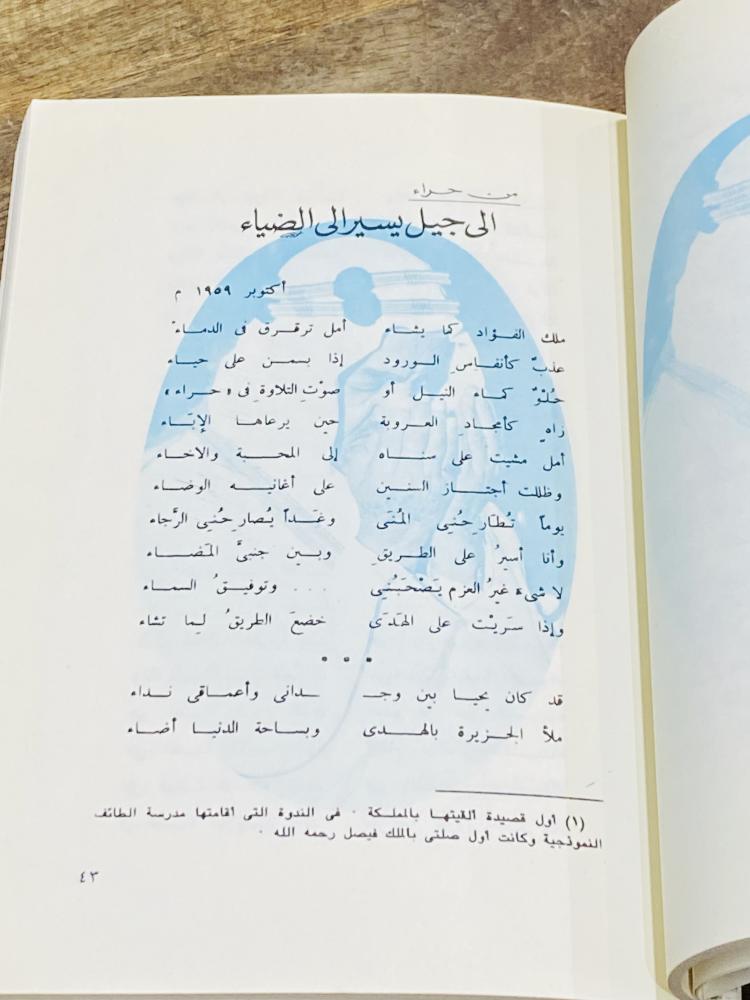 من حراء
الى جيل يسير الى الضياء
أكتوبر ١٩٥٩ م
ملك الفؤاد كما يشاء أمل ترقرق فى الدماء
عذبٌ كأنفاسِ الورود إذا بسمن على حياء
حُلْوٌ كماء النيل أو صوْتِ التلاوة فى «حراء»
زاهٍ كأمجادِ العروبة حين يرعاها الإبَاء
أمل مشيت على سناه إلى المحبة والاخاء
وظللت أجتاز السنين على أغانيه الوضاء
يوماً تُطَارِحُنِى المُنَى وغَداً يُصارِحُنِى الرَّجاء
وأنا أسيرُ على الطريقِ وبين جنبىَّ المَضَاء
لا شىء غيرُ العزم يَصْحَبُنِى . . . وتوفيقُ السماء
وإذا سَرَيْت على الهَدَى خضعَ الطريقُ لِما تشاء
• • •
قد كان يحيا بين وجـ ـدانى وأعماقى نداء
ملأ الجزيرة بالهدى وبساحة الدنيا أضاء
(١) أول قصيدة ألقيتها بالمملكة . فى الندوة التى أقامتها مدرسة الطائف
النموذجية وكانت أول صلتى بالملك فيصل رحمه الله .
٤٣